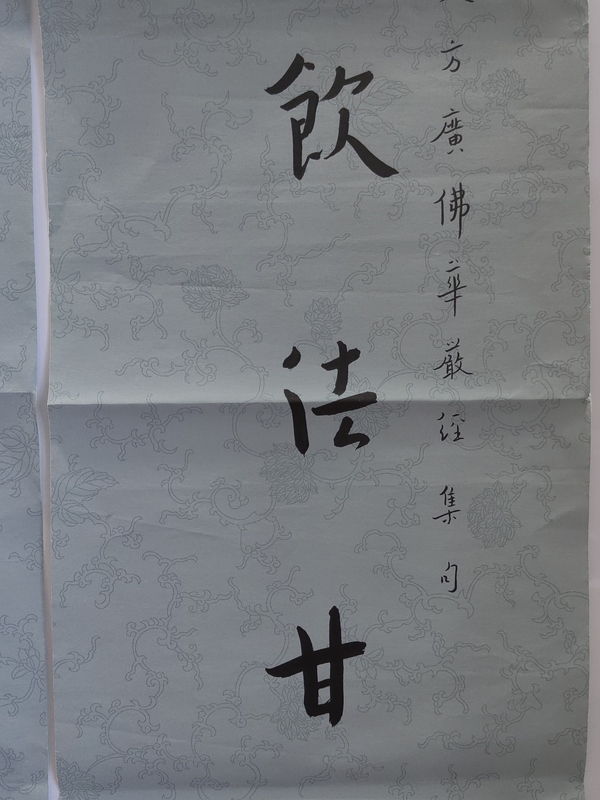 方廣佛華嚴經集句
飲法甘